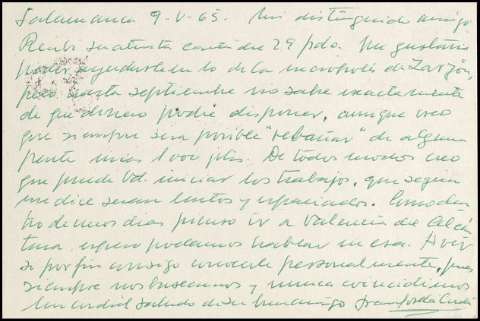 Salamanca 9-V-65. Mi distinguido amigo:
Recibí su atenta carta del 29 pdo. Me gustaría
poder ayudarle en lo de la necrópolis de Zarzón,
pero hasta septiembre no sabré exactamente
de qué dinero podré disponer, aunque creo
que siempre será posible "rebañar" de alguna
parte unas 1000 pts. De todos modos creo
que puede Vd. iniciar los trabajos, que según
me dice serán lentos y espaciados. Como den-
tro de unos días pienso ir a Valencia de Alcán
tara, espero podamos hablar en esa. A ver
si por fin consigo conocerle personalmente, pues
siempre nos buscamos y nunca coincidimos
Un cordial saludo de su buen amigo